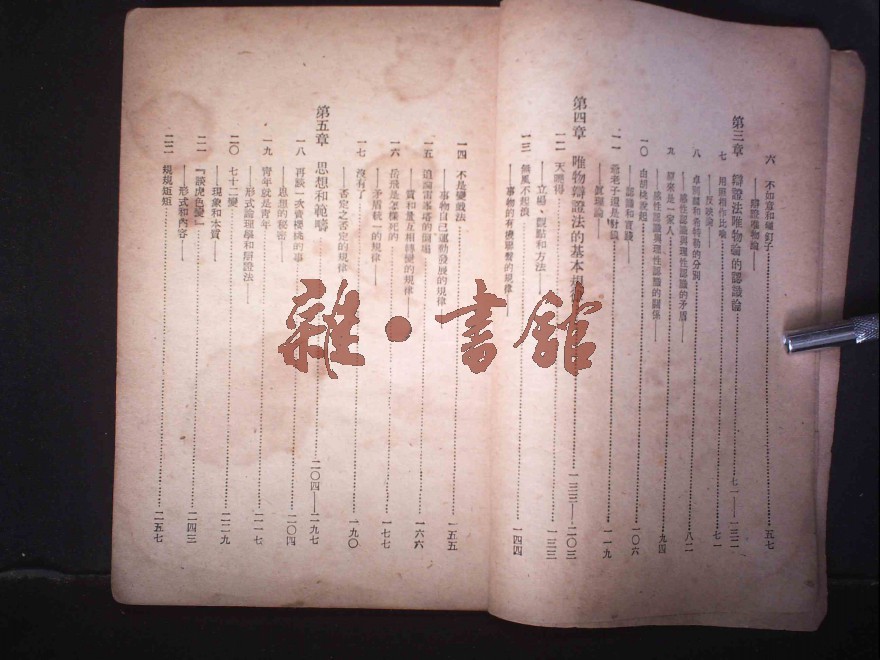 六 不如意和橡釘子……五七
——辯證唯物論——
第三章 辯證法唯物論的認識論……七一——一三二
七 用照相作比喻……七一
——反映論——
八 卓別麟和希特勒的分別……八二
——感性認識與理性認識的矛盾——
九 原來是一家人……九四
——感性認識與理性認識的關係——
一〇 由胡桃說起……一〇六
——認識和實踐——
一一 是老子還是財神……一一九
——眞理論——
第四章 唯物辯證法的基本規律……一三三——二〇三
一二 天曉得……一三三
——立場、觀點和方法——
一三 無風不起浪……一四四
——事物的有機聯繫的規律——
一四 不是變戲法……一五五
——事物自己運動發展的規律
一五 追論雷峯塔的倒塌……一六六
——質和量互相轉變的規律——
一六 岳飛是怎樣死的……一七七
——矛盾統一的規律——
一七 沒有了……一九〇
——否定之否定的規律
第五章 思想和範疇……二〇四——一九七
一八 再談一次賣櫻桃的事……二〇四
——思想的秘密——
一九 青年就是青年……二一七
——形式論理學和辯證法——
二〇 七十二變……二二九
——現象和本質——
二一 『談虎色變』……二四三
——形式和內容——
二二 規規矩矩……二五七
雜·書舘